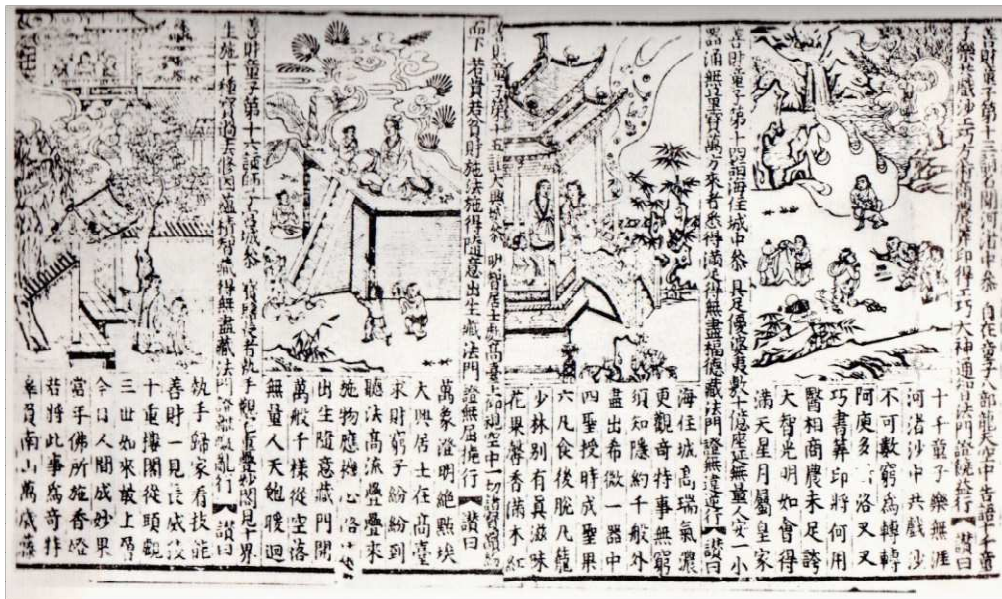 善財童子第十三詣名聞河渚中叅 自在童子八部龍天空中告語十千童
子樂 戲沙 巧方術商農 印得工巧大神通智 法門證饒益行【讚曰
十千童子樂無涯
河渚沙中共戲沙
不可數窮爲轉轉
阿庾多 洛叉叉
巧書筭印將何用
醫相商農未足誇
大智光明如會得
滿天星月屬皇家
善財童子第十四詣海住城中叅 具足優婆夷數十億座延無量人安一小
器涌無量寶萬方來者悉得滿足得無盡福德藏法門證無違逆行【讚曰
海住城高瑞氣濃
更觀奇特事無窮
須知隱約千般外
盡出希微一器中
四聖授時成聖果
六凡食後脫凡籠
少林別有眞滋味
花果馨香滿木紅
善財童子第十五詣大興城叅 明智居士處高臺上仰視空中一切諸寶繽紛
而下若貴若貧財施法施得隨意出生藏法門 證無屈撓行【讚曰
萬象證明絶點埃
大興居士在高臺
求財窮子紛紛到
聽法高流疊疊來
施物應機心洛
出生隨意藏門開
萬般千樣從空落
無量人天飽暖迴
善財童子第十六詣師子宮城叅 寶髻長者執手觀 重疊妙閣見十界
生施十種寶過去修因蘊積智藏得無盡藏法門 證離癡亂行【讚曰
執手歸家看技能
善財一見長威稜
十重樓閣從頭觀
三世如來最上層
今日人間成妙果
當年佛所施香燈
若將此事爲奇特
辜負南山萬歲藤